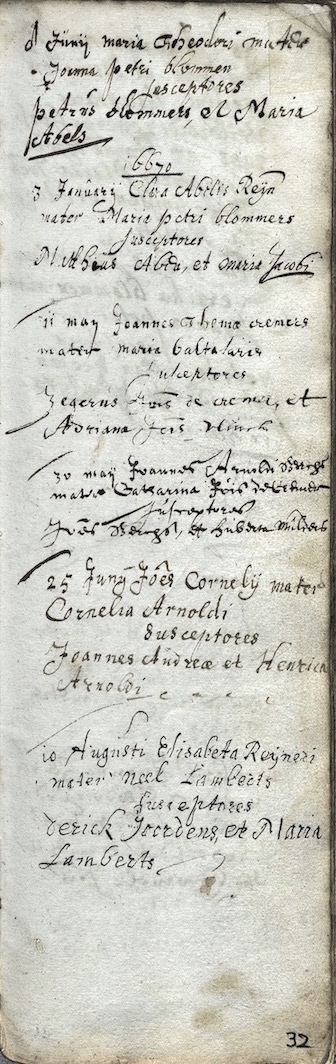 8 Junij maria Theodori mater
Joanna petri blommen
susceptores
petrus blommers, et Maria
Abels
1667
3 Januarij Abelis Reyn
mater Maria petri blommers
susceptores
Matheus et maria Jacobi
11 may Joannes Thomæ cremers
mater maria baltasaris
susceptores
Zegerus Jois de cremer, et
Adriana Jois
30 maij Joannes Arnoldi
mater Catharina Jois
susceptores
Joes et huberta mulders
25 Junij Joes Cornelij mater
Cornelia Arnoldi
susceptores
Joannes Andreæ et Henrica
Arnoldi
10 Augusti Elisabeta Reyneri
mater Neel Lamberts
susceptores
derick Joordens, et Maria
Lamberts
32